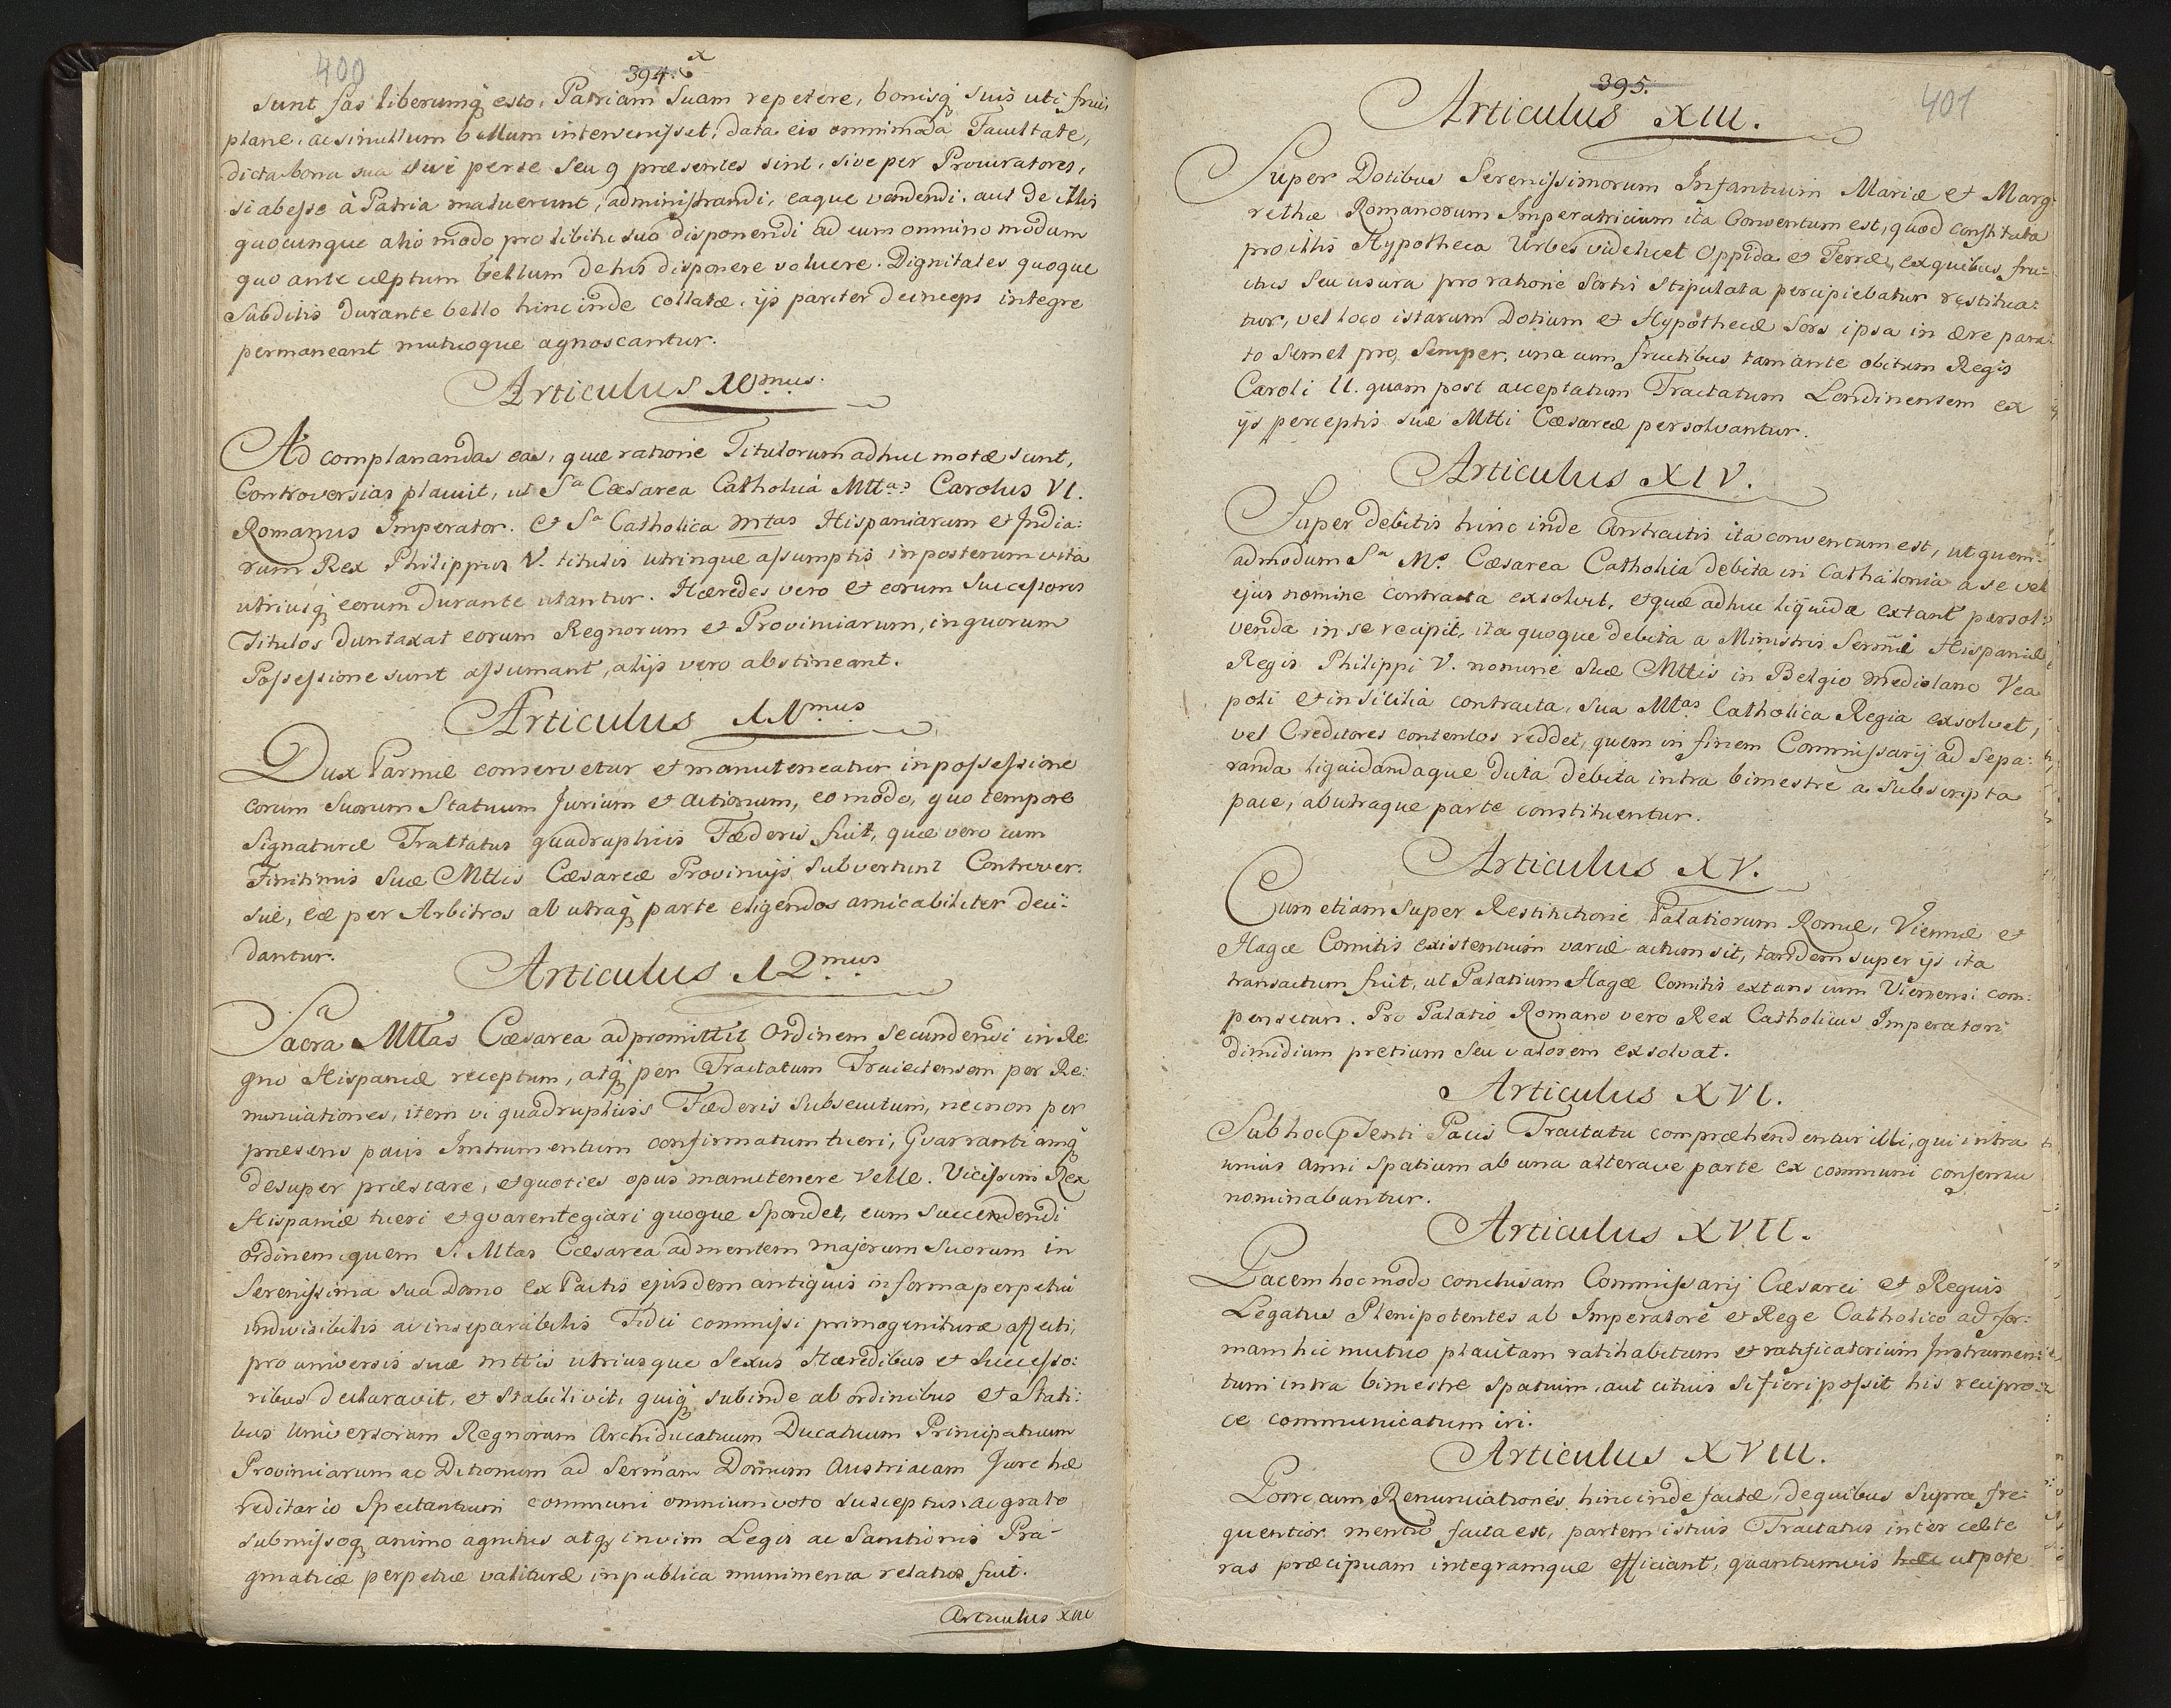 400
394.
sunt fas liberumq esto, Patriam Suam repetere, bonisq suis uti frui,
plane, ac si nullum bellum intervenisset, data eis omnimoda Facultate,
dicta bona sua sive per se seu 9 præsentes sint, sive per Procuratores,
si abesse à Patria maluerunt, administrandi, eaque vendendi, aut de illis
quocunque alio modo pro libitu suo disponendi ad eum omnino modum
quo ante cœptum bellum de his disponere voluere. Dignitates quoque
Subditis durante bello hinc inde collatæ, ijs pariter deinceps integre
permaneant mutuoque agnoscantur.
Articulus 10mus.
Ad complanandas eas, quæ ratione Titulorum adhuc motæ sunt,
Controversias placuit, ut Sa Cæsarea Catholica Mttas Carolus VI.
Romanus Imperator. et Sa Catholica mtas Hispaniarum et India:
rum Rex Philippus V. titulis utrinque assumptis in posterum vita
utriusq eorum durante utantur. Hæredes vero et eorum Successores
Titulos duntaxat eorum Regnorum et Provinciarum, in quorum
Possessione sunt assumant, alijs vero abstineant.
Articulus 11mus
Dux Parmæ conservetur et manuteneatur in possessione
eorum suorum Statuum Jurium et actionum, eo modo, quo tempore
Signaturæ Trattatus quadruplicis Fœderis fuit, quæ vero cum
Finitimis Suæ Mttis Cæsareæ Provincijs subvertunt Controver:
siæ, eæ per Arbitros ab utraq parte eligendos amicabiliter deci:
dantur.
Articulus 12mus
Sacra Mttas Cæsarea ad promittit Ordinem Secundendi in Re:
gno Hispaniæ receptum, atq per Tractatum Traiectensem per Re:
nunciationes, item vi quadruplicis Fœderis subsecutum, necnon per
præsens pacis Instrumentum confirmatum tueri, Gvarrantiamq
desuper præstare, et quoties opus manutenere velle. Vicissim Rex
Hispaniæ tueri et gvarentegiari quoque spondet, eum succendendi
ordinem, quem S. Mtas Cæsarea ad mentem majorum suorum in
Serenissima sua Domo ex Pactis ejusdem antiquis in forma perpetui
indivisibilis ac inseparabilis Fidei commissi primogenituræ affecti,
pro universis suæ mttis utriusque Sexus Hæredibus et Successo:
ribus declaravit, et stabilivit, quiq subinde ab ordinibus et Stati:
bus Universorum Regnorum Archiducatuum Ducatuum Principatuum
Provinciarum ac Ditionum ad Sermam Domum Austriacam Jure hæ
reditario Spectantium communi omnium voto susceptus, ac grato
submissoq animo agnitus atq in vim Legis ac Sanctionis Pra-
gmaticæ perpetuæ valituræ in publica munimenta relatus fuit.
Articulus XIII
395.
401
Articulus XIII.
Super Dotibus Serenissimorum Infantium Mariæ et Marg:
rethæ Romanorum Imperatricium ita Conventum est, quod constituta
pro illis Hypotheca Urbes videlicet Oppida et Terræ, ex quibus fru:
ctus seu usura pro ratione Sortis stipulata percipiebatur restitua:
tur, vel loco istarum Dotium et Hypothecæ Sors ipsa in ære para:
to semel pro Semper, una cum fructibus tam ante obitum Regis
Caroli II. quam post acceptatum Tractatum Londinensem ex
ijs perceptis suæ Mtti Cæsareæ persolvantur.
Articulus XIV.
Super debitis hinc inde Contractis ita conventum est, ut quem:
admodum Sa Ms Cæsarea Catholica debita in Cathalonia a se vel
ejus nomine contracta exsolvit, et quæ adhuc liquida extant persol:
venda in se recipit, ita quoque debita a Ministris Sermi Hispaniæ
Regis Philippi V. nomine Suæ Mttis in Belgio Mediolano Nea
poli et in Sicilia contracta, Sua Mtas Catholica Regia exsolvet,
vel Creditores contentos reddet, quem in finem Commissarij ad Sepa:
randa liquidandaque dicta debita intra bimestre a Subscripta
pace, ab utraque parte constituentur.
Articulus XV.
Cum etiam super Restitutione Palatiorum Romæ, Viennæ et
Hagæ Comitis existentium variè actum sit, tandem super ijs ita
transactum fuit, ut Palatium Hagæ Comitis extans cum Viennensi com:
pensetur. Pro Palatio Romano vero Rex Catholicus Imperatori
dimidium pretium Seu valorem exsolvat.
Articulus XVI.
Sub hoc pSenti Pacis Tractatu compræhendentur illi, qui intra
unius anni spatium ab una alterave parte ex communi consensu
nominabuntur.
Articulus XVII.
Pacem hoc modo conclusam Commissarij Cæsarei et Regius
Legatus Plenipotentes ab Imperatore et Rege Catholico ad for:
mam hic mutuo placitam ratihabitum et ratificatorium Instrumen:
tum intra bimestre spatium, aut citius si fieri possit his recipro:
ce communicatum iri.
Articulus XVIII.
Porro cum Renunciationes hinc inde factæ, de quibus supra fre:
quentior mentio facta est, partem istius Tractatus inter cæte
ras præcipuam integramque efficiant, quantumvis hæc utpote